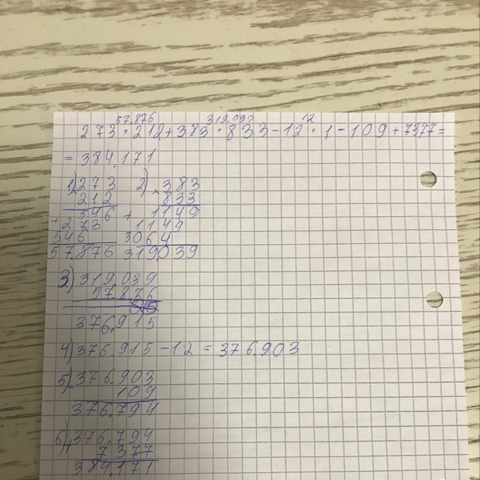 57.876 319.039 12
273 · 212 + 383 · 833 - 12 · 1 - 109 + 7377 =
= 384.171
1) 273 2) 383
212 833
546 + 1149
+ 273 1149
546 3064
57.876 319.039
3) 319.039
57.876
376.915
4) 376.915 - 12 = 376.903
5) 376.903
109
376.794
6) 376.794
7377
384.171